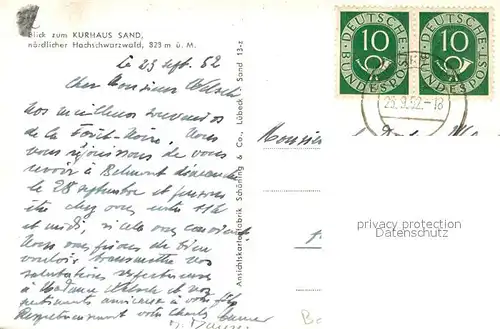 Blick zum KURHAUS SAND,
nördlicher Hochschwarzwald, 823 m ü. M.
le 23 sept. 52
Cher Monsieur
Nos meilleurs souvenirs
de la Forêt-Noire. Nous
nous réjouissons de vous
revoir à Belmont dimanche
le 28 septembre et pensons
être chez vous entre 11h
et midi, si cela vous convient
Nous vous prions de bien
vouloir transmettre nos
salutations respectueuses
à Madame et vos
sentiments à votre fils
Respectueusement votre Charles
Ansichtskartenfabrik Schöning & Co., Lübeck Sand 13-z
DEUTSCHE BUNDESPOST 10
DEUTSCHE BUNDESPOST 10
23.9.52.-18
Monsieur
privacy protection
Datenschutz